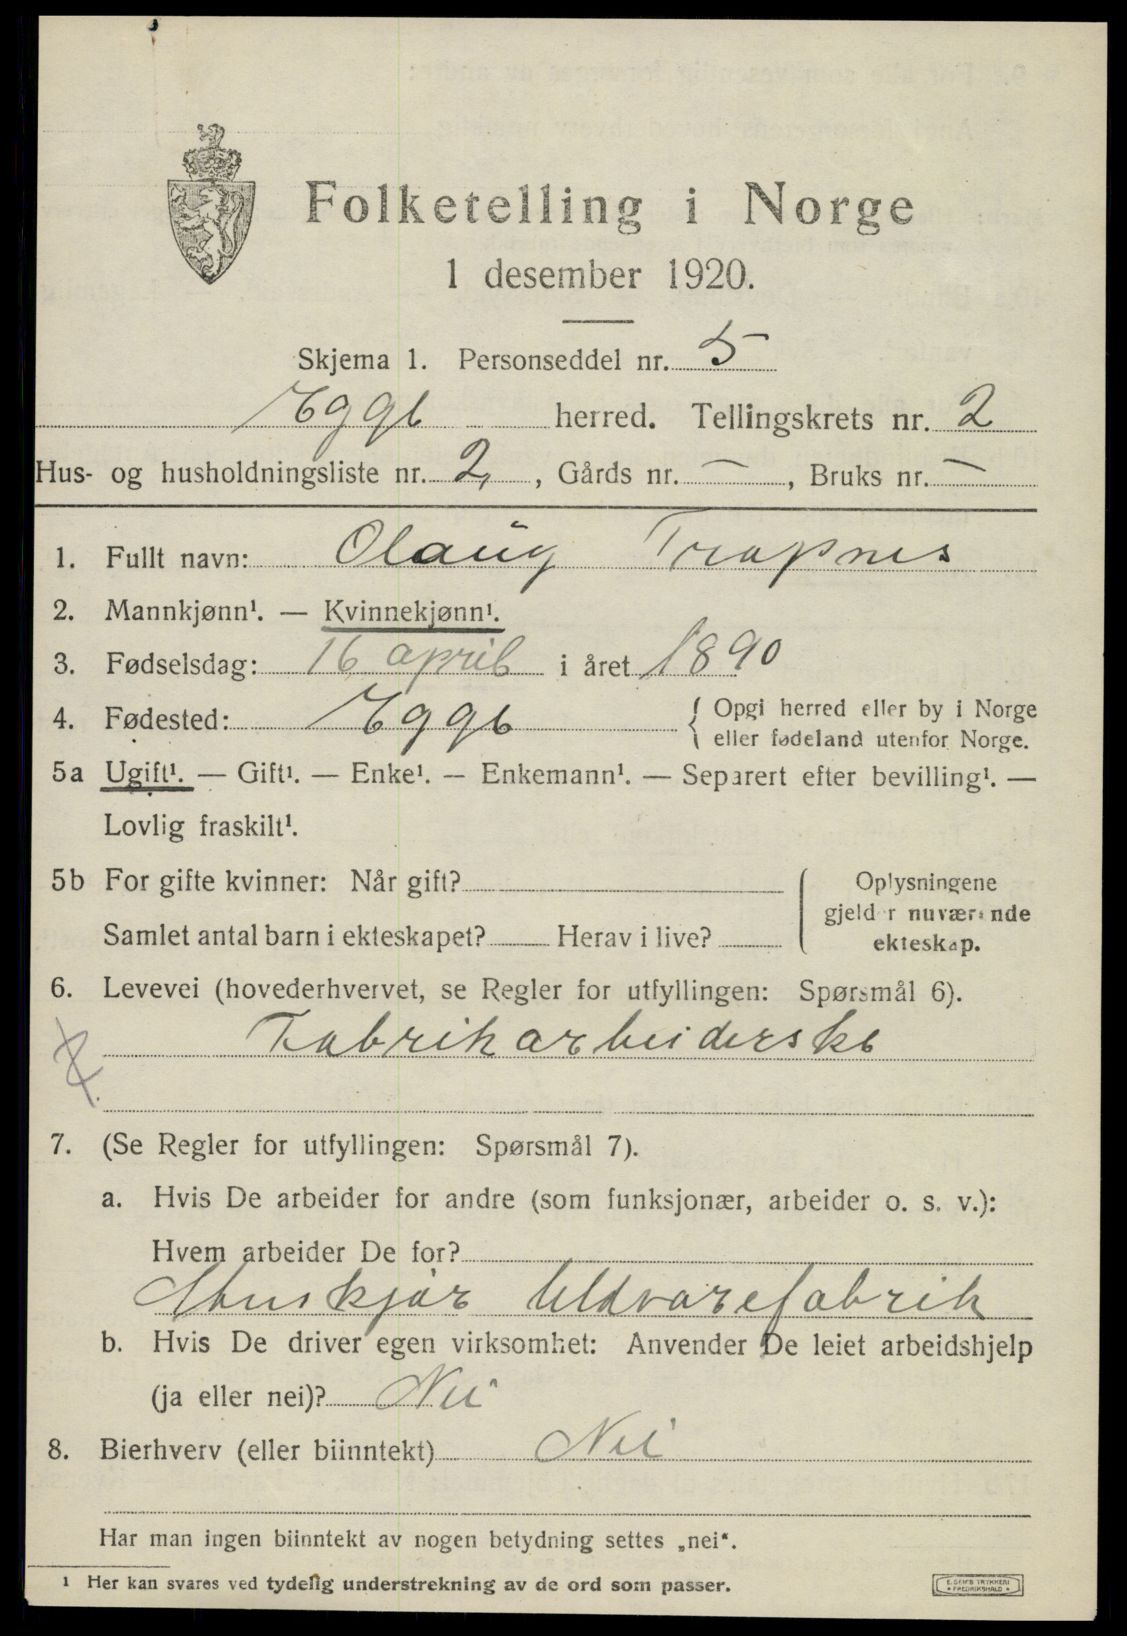 Folketelling i Norge
1 desember 1920.
Skjema 1. Personseddel nr. 5
Egge herred. Tellingskrets nr. 2
Hus- og husholdningsliste nr. 2, Gårds nr. —, Bruks nr. —
1. Fullt navn: Olaug Trapnes
2. Mannkjønn¹. — Kvinnekjønn¹.
3. Fødselsdag: 16 april i året 1890
4. Fødested: Egge { Opgi herred eller by i Norge
eller fødeland utenfor Norge.
5a Ugift¹. — Gift¹. — Enke¹. — Enkemann¹. — Separert efter bevilling¹. —
Lovlig fraskilt¹.
5b For gifte kvinner: Når gift?
Samlet antal barn i ekteskapet? Herav i live?
Oplysningene
gjelder nuværende
ekteskap.
6. Levevei (hovederhvervet, se Regler for utfyllingen: Spørsmål 6).
Fabrikarbeiderske
7. (Se Regler for utfyllingen: Spørsmål 7).
a. Hvis De arbeider for andre (som funksjonær, arbeider o. s. v.):
Hvem arbeider De for?
Uldvarefabrik
b. Hvis De driver egen virksomhet: Anvender De leiet arbeidshjelp
(ja eller nei)? Nei
8. Bierhverv (eller biinntekt) Nei
Har man ingen biinntekt av nogen betydning settes „nei“.
¹ Her kan svares ved tydelig understrekning av de ord som passer.
E. SEMS TRYKKERI
• FREDRIKSHALD •